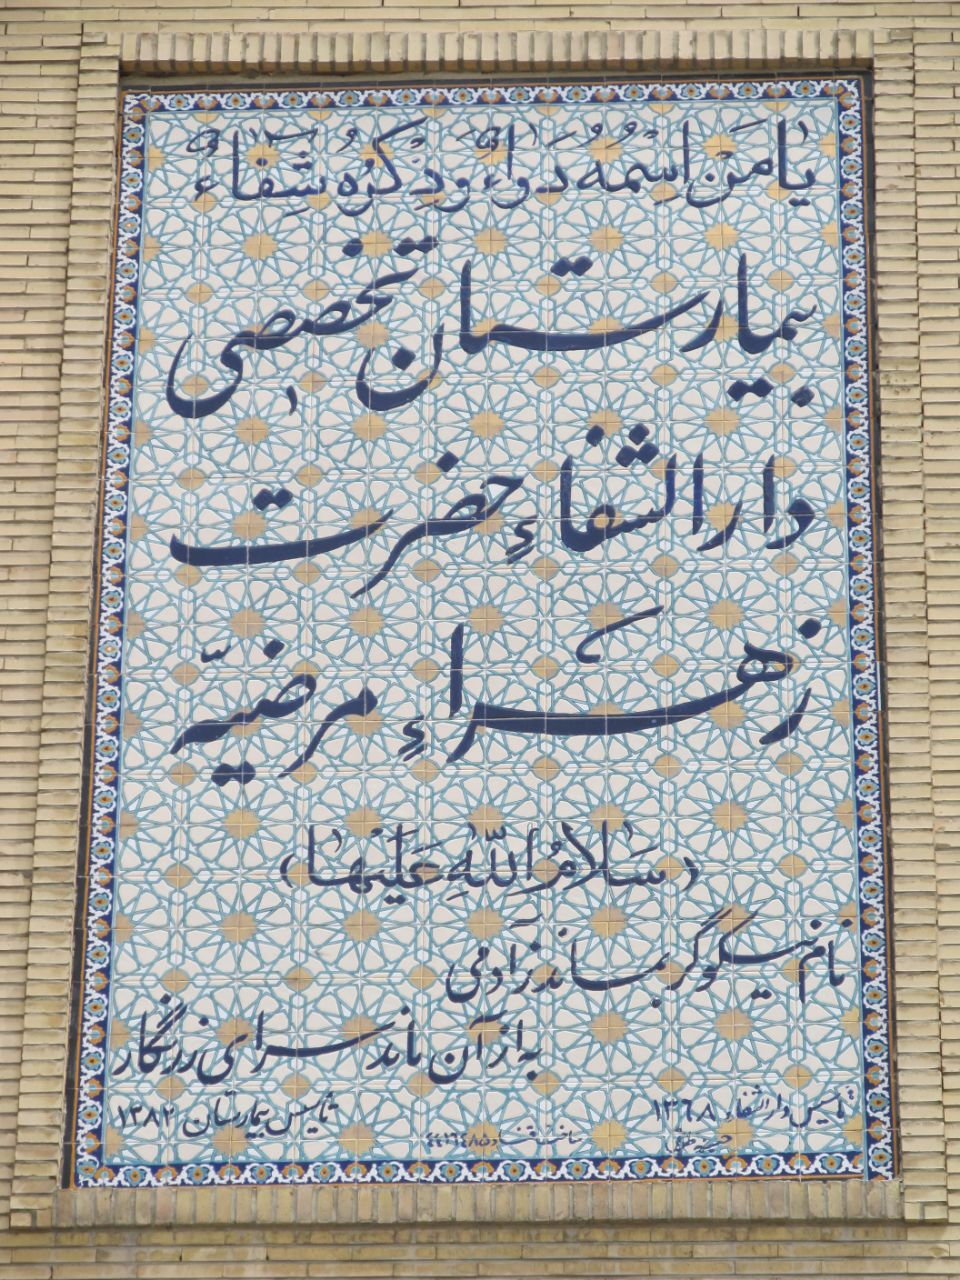 یا مَنْ اسْمُهُ دَواءٌ وَ ذِکْرُهُ شِفاءٌ
بیمارستان تخصصی
دارالشفاءِ حضرت
زهراءِ مرضیّه
(سَلامُ اللّهِ عَلَیْها)
نام نیکو گر بماند ز آدمی
به از آن ماند سرای زرنگار
تأسیس دارالشفاء ۱۳۶۸
تأسیس بیمارستان ۱۳۸۲